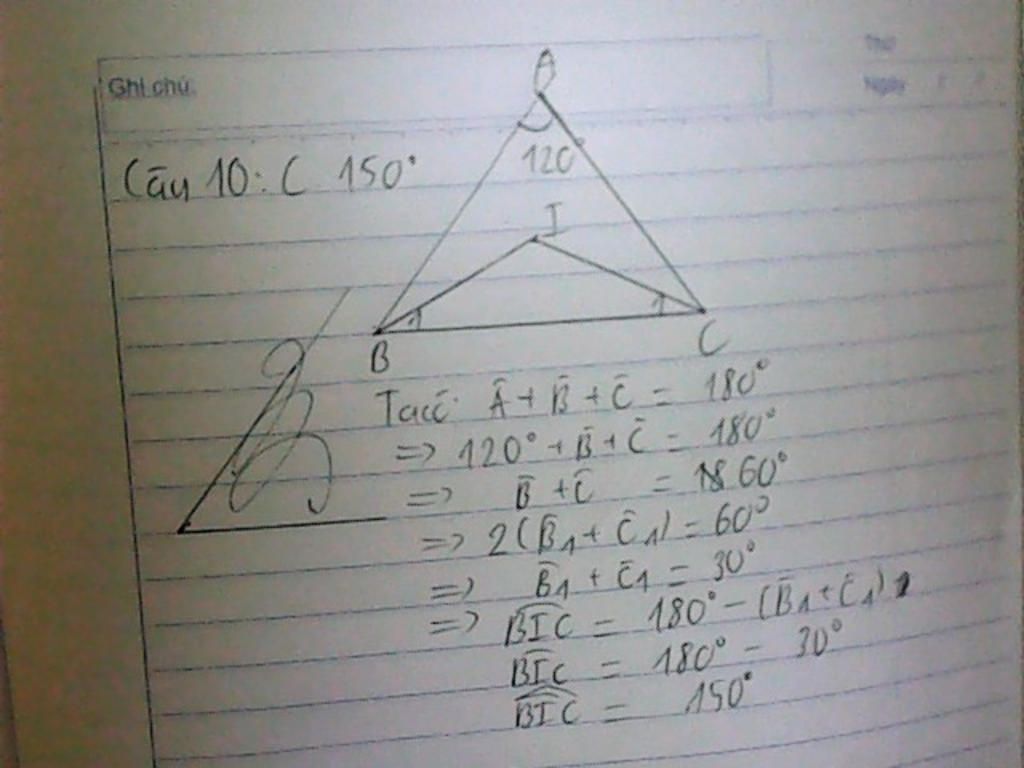 Thứ
Ghi chú:
Ngày / /
A
Câu 10: C 150°
120°
I
1 1
B C
Tacć: Â + B̂ + Ĉ = 180°
=> 120° + B̂ + Ĉ = 180°
=> B̂ + Ĉ = 60°
=> 2(B̂1 + Ĉ1) = 60°
=> B̂1 + Ĉ1 = 30°
=> BIC = 180° - (B̂1 + Ĉ1)
BIC = 180° - 30°
BIC = 150°